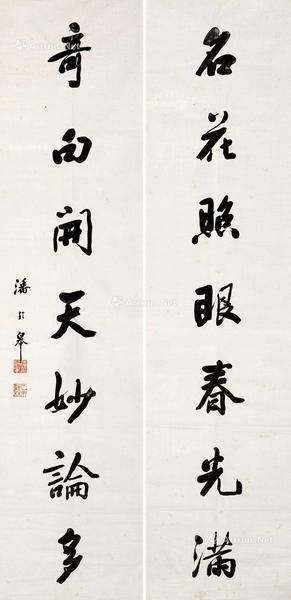 名花照眼春光滿
奇句開天妙論多
潘齡皋